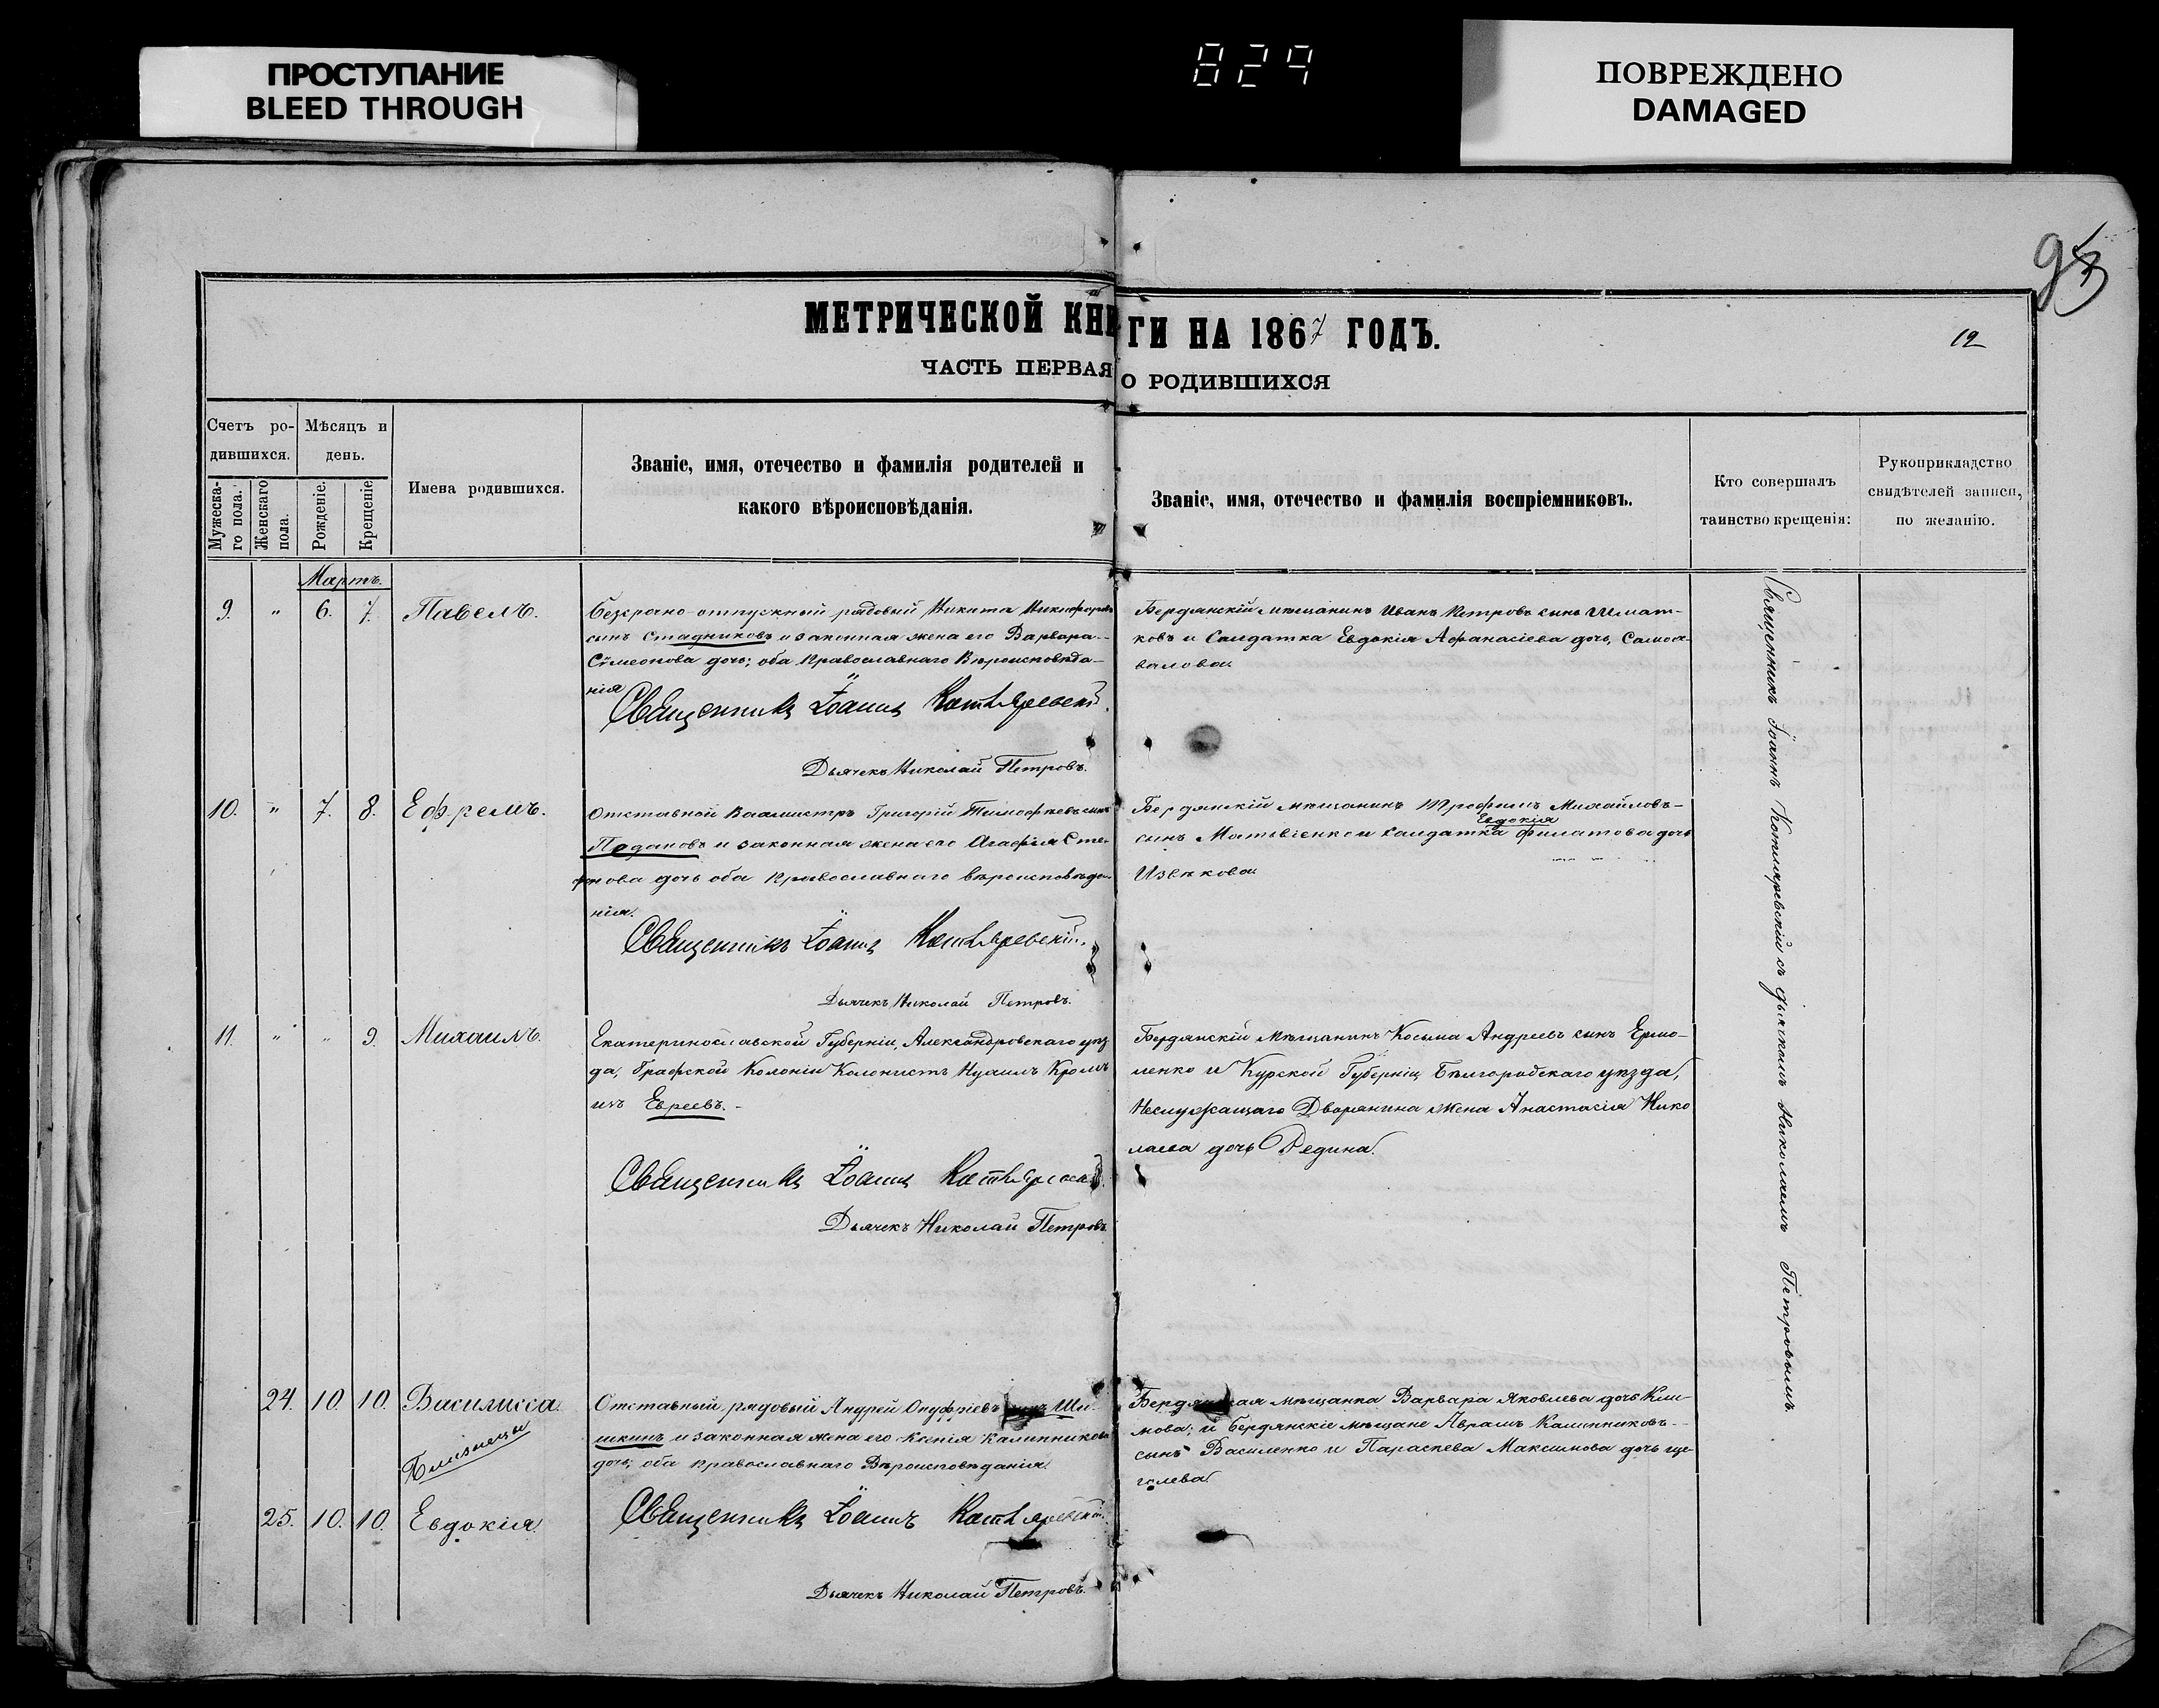 ПРОСТУПАНИЕ
BLEED THROUGH
829
ПОВРЕЖДЕНО
DAMAGED
МЕТРИЧЕСКОЙ КНИГИ НА 1867 ГОДЪ.
12
ЧАСТЬ ПЕРВАЯ О РОДИВШИХСЯ
Счетъ ро-
дившихся.
Мужеска-
го пола.
Женскаго
пола.
Мѣсяцъ и
день.
Рожденіе.
Крещеніе
Имена родившихся.
Званіе, имя, отечество и фамилія родителей и
какого вѣроисповѣданія.
Званіе, имя, отечество и фамилія воспріемниковъ.
Кто совершалъ
таинство крещенія:
Рукоприкладство
свидѣтелей записи,
по желанію.
Мартъ.
9. " 6. 7. Павелъ.
Безсрочно-отпускный рядовый Никита Никифоровъ
сынъ Стадниковъ и законная жена его Варвара-
Сѵмеонова дочь; оба Православнаго Вѣроисповѣда-
нія
Священникъ Іоаннъ Котляревскій.
Дьячекъ Николай Петровъ.
Бердянскій мѣщанинъ Иванъ Петровъ сынъ Шмат-
ковъ и Солдатка Евдокія Афанасіева дочь, Самоа-
валова
10. " 7. 8. Ефремъ.
Отставной Вахмистръ Григорій Тимофѣевъ сынъ
Подановъ и законная жена его Агафія Сте-
фанова дочь оба Православнаго вѣроисповѣда-
нія.
Священникъ Іоаннъ Котляревскій.
Дьячекъ Николай Петровъ.
Бердянскій мѣщанинъ Трофимъ Михайловъ-
Евдокія
сынъ Матвіенко и солдатка Филатова дочь
Извѣкова
11. " " 9. Михаилъ.
Екатеринославской Губерніи, Александровскаго уѣз
да, Графской Колоніи Колонистъ Нуаимъ Кромъ
изъ Евреевъ.-
Священникъ Іоаннъ Котляревскій.
Дьячекъ Николай Петровъ
Бердянскій Мѣщанинъ Косьма Андреевъ сынъ Ермо-
ленко и Курской Губерніи Бѣлгородскаго уѣзда,
Неслужащаго Дворянина жена Анастасія Нико
лаева дочь Редина.
24. 10 10. Василисса.
Близнецы
25. 10. 10. Евдокія.
Отставный рядовый Андрей Онуфріевъ сынъ Ши-
шкинъ и законная жена его Ксенія Калинникова
дочь; оба православнаго Вѣроисповѣданія.
Священникъ Іоаннъ Котляревскій.
Дьячекъ Николай Петровъ.
Бердянская мѣщанка Варвара Яковлева дочь Кли-
мова; и Бердянскіе мѣщане Аврамъ Калинниковъ-
сынъ Василенко и Параскева Максимова дочь Ще-
голева
Священникъ Іоаннъ Котляревскій съ дьячкомъ Николаемъ Петровымъ.